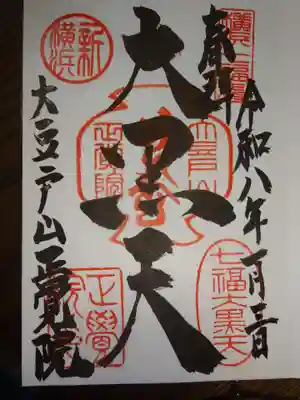 奉拝
令和八年一月三日
大黒天
大豆戸山正覚院
新横浜
七福大黒天
正覺